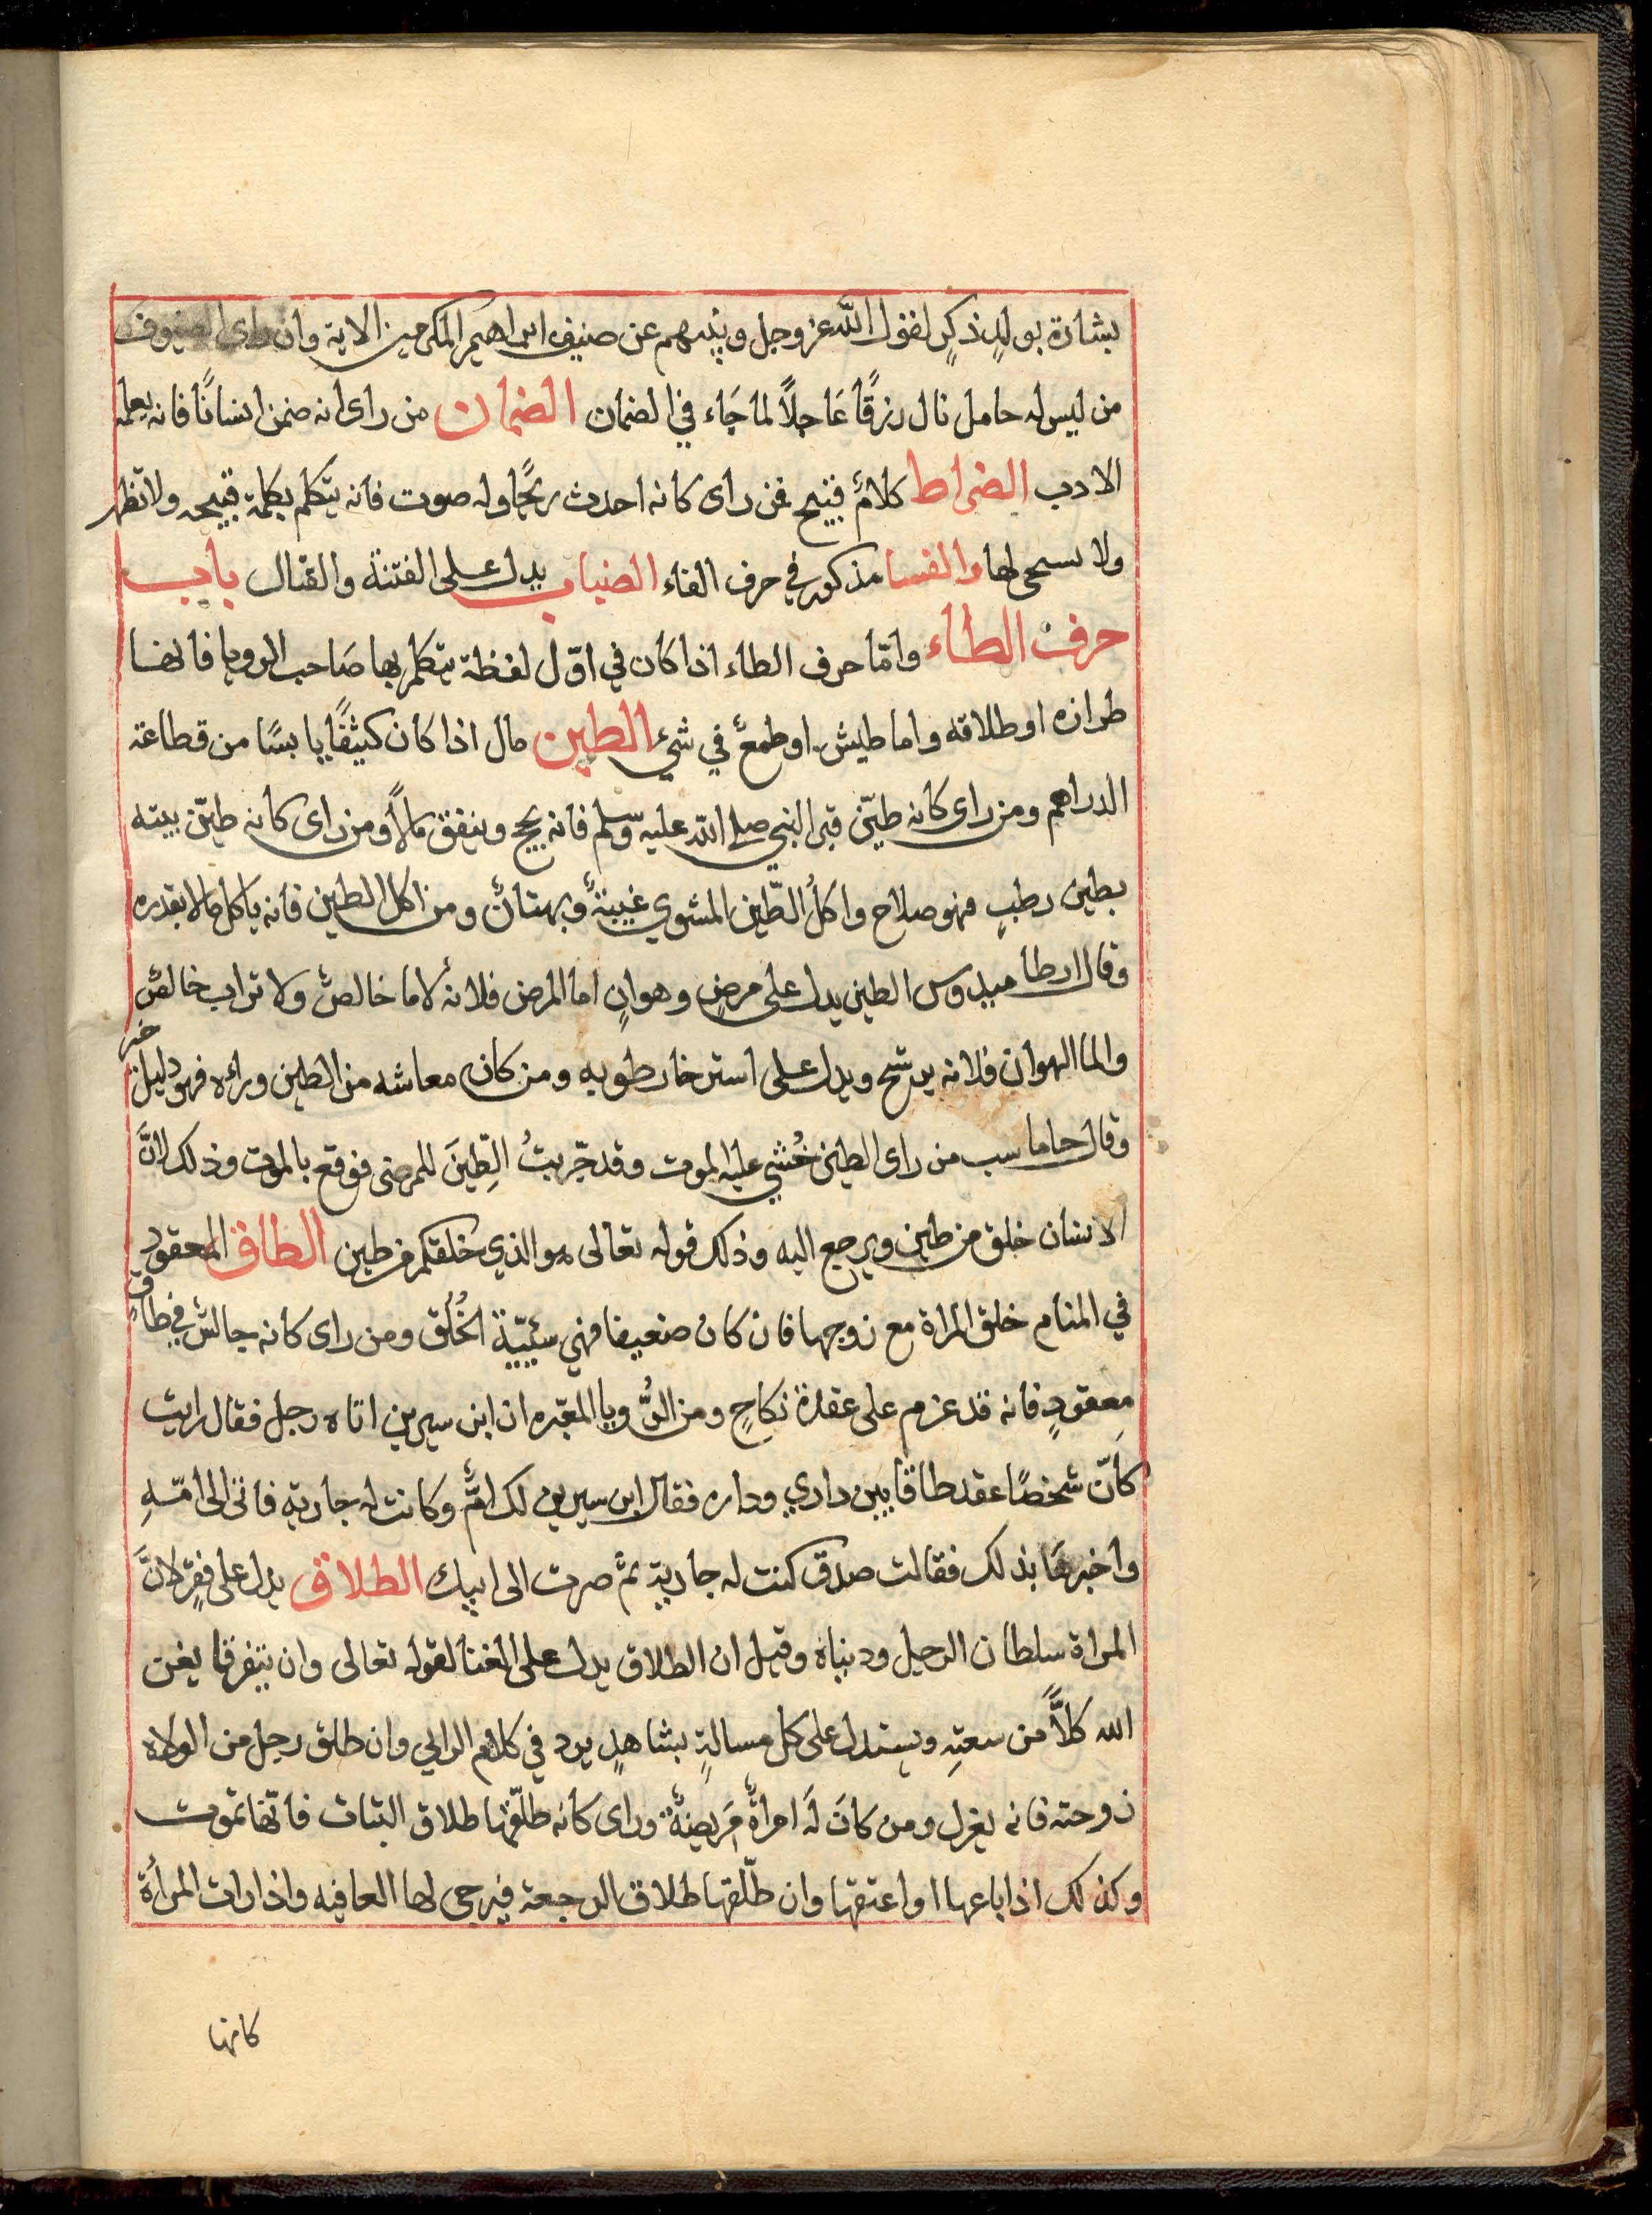 بشارة بولدٍ ذكرٍ لقول الله عز وجل ونبئهم عن ضيف ابراهيم المكرمين الاية وان راى الضيوف
من ليس له حامل نال رزقًا عَاجلاً لما جَاء في الضمان الضمان من راى انه ضمن انسانًا فانه يعلمه
الادب الضراط كلامٌ قبيح فمن راى كانه احدث ريحًا وله صوت فانه يتكلم بكلمة قبيحه ولا تظهر
ولا يسحى لها والفسا مذكور في حرف الفاء الضباب يدل على الفتنة والقتال باب
حرف الطاء وامّا حرف الطاء اذا كان في اوّل لفظة يتكلم بها صَاحب الرويا فانها
طرازه او طلاقه واما طيش او طمعٌ في شيٍ الطين مال اذا كان كثيفًا يابسًا من قطاعة
الدراهم ومن راى كانه طيّن قبر النبي صلى الله عليه وسلم فانه يحج وينفق مالاً ومن راى كانه طيّن بيته
بطين رطبٍ فهو صلاح واكلُ الطّين المشوي غيبةٌ وبهتانٌ ومن اكل الطين فانه ياكل مالا بقدره
وقال ارطاميدوس الطين يدل على مرضٍ وهوانٍ اما المرض فلانه لا ما خالصٌ ولا تراب خالصٌ
والما الهوان فلانه يرشح ويدل على استرخا رطوبه ومن كان معاشه من الطين وراءه فهو دليل خير
وقال حاماسب من راى الطين خُشي عليه الموت وقد جّربتُ الطِّينَ للمرضى فوقع بالموت وذلك لانَّ
الانسان خلق من طين ويرجع اليه وذلك قوله تعالى هو الذي خلقكم من طين الطاق المعقود
في المنام خلق المراة مع زوجها فان كان ضعيفا فهي سئيّة الخُلُق ومن راى كانه جالسٌ في طاقٍ
معقودٍ فانه قد عزم على عقدة نكاحٍ ومن الرُّويا المعبّره ان ابن سيرين اتاه رجل فقال رايت
كانّ شخصًا عقد طاقا بين داري وداره فقال ابن سيرين لك امٌّ وكانت له جارية فاتى الى امّهِ
واخبرها بذلك فقالت صدق كنت له جارية ثمّ صرت الى ابيك الطلاق يدل على فقرٍ لانَّ
المراة سلطان الرجل ودنياه وقيل ان الطلاق يدل على الغنا لقوله تعالى وان يتفرقا يغن
الله كلاًّ من سعتهِ ويستدل على كل مسالةٍ بشاهدٍ يرد في كلام الرايي وان طلق رجل من الولاه
زوجته فانه يعزل ومن كانَ لَه امراةٌ مَريضةٌ وراى كانه طلّقها طلاق البتات فانّها تموت
وكذلك اذا باعها او اعتقها وان طلّقها طلاق الرجعة فيرجى لها العافيه واذا رات المراة
كانها